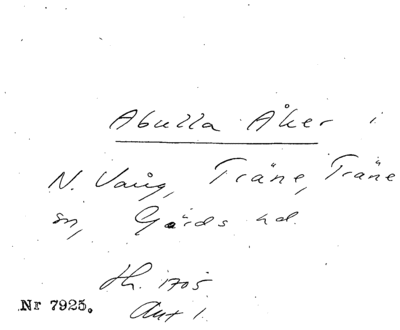 Abulla Åker i
N. Vång, Träne, Träne
sn, Gärds hd.
Hh. 1705
Akt 1.
Nr 7925.